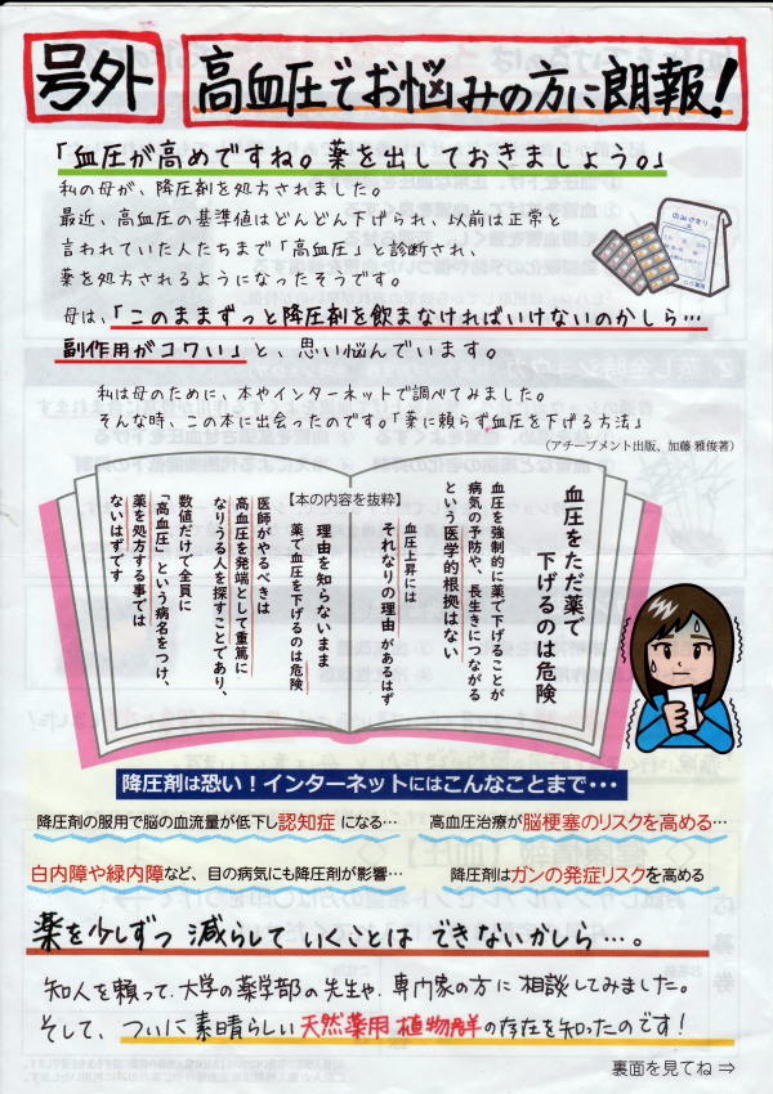 号外
高血圧でお悩みの方に朗報！
「血圧が高めですね。薬を出しておきましょう。」
私の母が、降圧剤を処方されました。
最近、高血圧の基準値はどんどん下げられ、以前は正常と
言われていた人たちまで「高血圧」と診断され、
薬を処方されるようになったそうです。
母は、「このままずっと降圧剤を飲まなければいけないのかしら…
副作用がコワい」と、思い悩んでいます。
私は母のために、本やインターネットで調べてみました。
そんな時、この本に出会ったのです。「薬に頼らず血圧を下げる方法」
（アチーブメント出版、加藤雅俊著）
血圧をただ薬で
下げるのは危険
血圧を強制的に薬で下げることが
病気の予防や、長生きにつながる
という医学的根拠はない
【本の内容を抜粋】
血圧上昇には
それなりの理由があるはず
理由を知らないまま
薬で血圧を下げるのは危険
医師がやるべきは
高血圧を発端として重篤に
なりうる人を探すことであり、
数値だけで全員に
「高血圧」という病名をつけ、
薬を処方する事では
ないはずです
降圧剤は恐い！インターネットにはこんなことまで・・・
降圧剤の服用で脳の血流量が低下し認知症になる…
高血圧治療が脳梗塞のリスクを高める…
白内障や緑内障など、目の病気にも降圧剤が影響…
降圧剤はガンの発症リスクを高める
薬を少しずつ減らしていくことはできないかしら…。
知人を頼って、大学の薬学部の先生や、専門家の方に相談してみました。
そして、ついに素晴らしい天然薬用植物群の存在を知ったのです！
裏面を見てね⇒